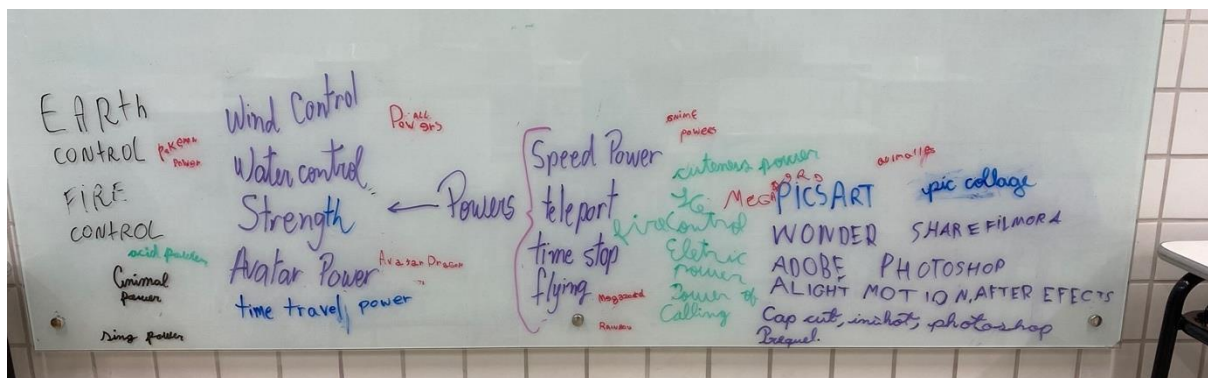 EARth
CONTROL
FIRE
CONTROL
acid power
Animal
power
sing power
Pokemon
Power
Wind Control
Water control
Strength
Avatar Power
time travel power
ALL
Powers
← Powers
Avatar Dragon
Speed Power
teleport
time stop
flying
Rainbow
anime
powers
cuteness power
Ice
fire control
Eletric
power
Power of
Calling
animalles
PICSART
pic collage
WONDER SHARE FILMORA
ADOBE PHOTOSHOP
ALIGHT MOTION, AFTER EFECTS
Cap cut, inshot, photoshop
Prequel.